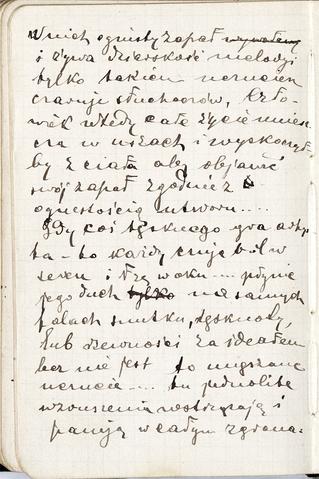 W nich ognisty zapał wywołany
i żywa dziarskość melodyi
tylko takiem uczuciem
czaruje słuchaczów, Czło-
wiek wtedy całe życie umiesz-
cza w uszach i wyskoczył
by z ciała aby objawić
swój zapał zgodnie z
ognistością utworu.....
Gdy coś tęsknego gra artys-
ta - to każdy czuje ból w
sercu i łzę w oku.... płynie
jego duch tylko na samych
falach smutku, tęsknoty,
lub rzewności za ideałem
bez nie jest to mieszane
uczucie.... tu jednolite
wzruszenia wstrząsają i
panują w całym zgroma-